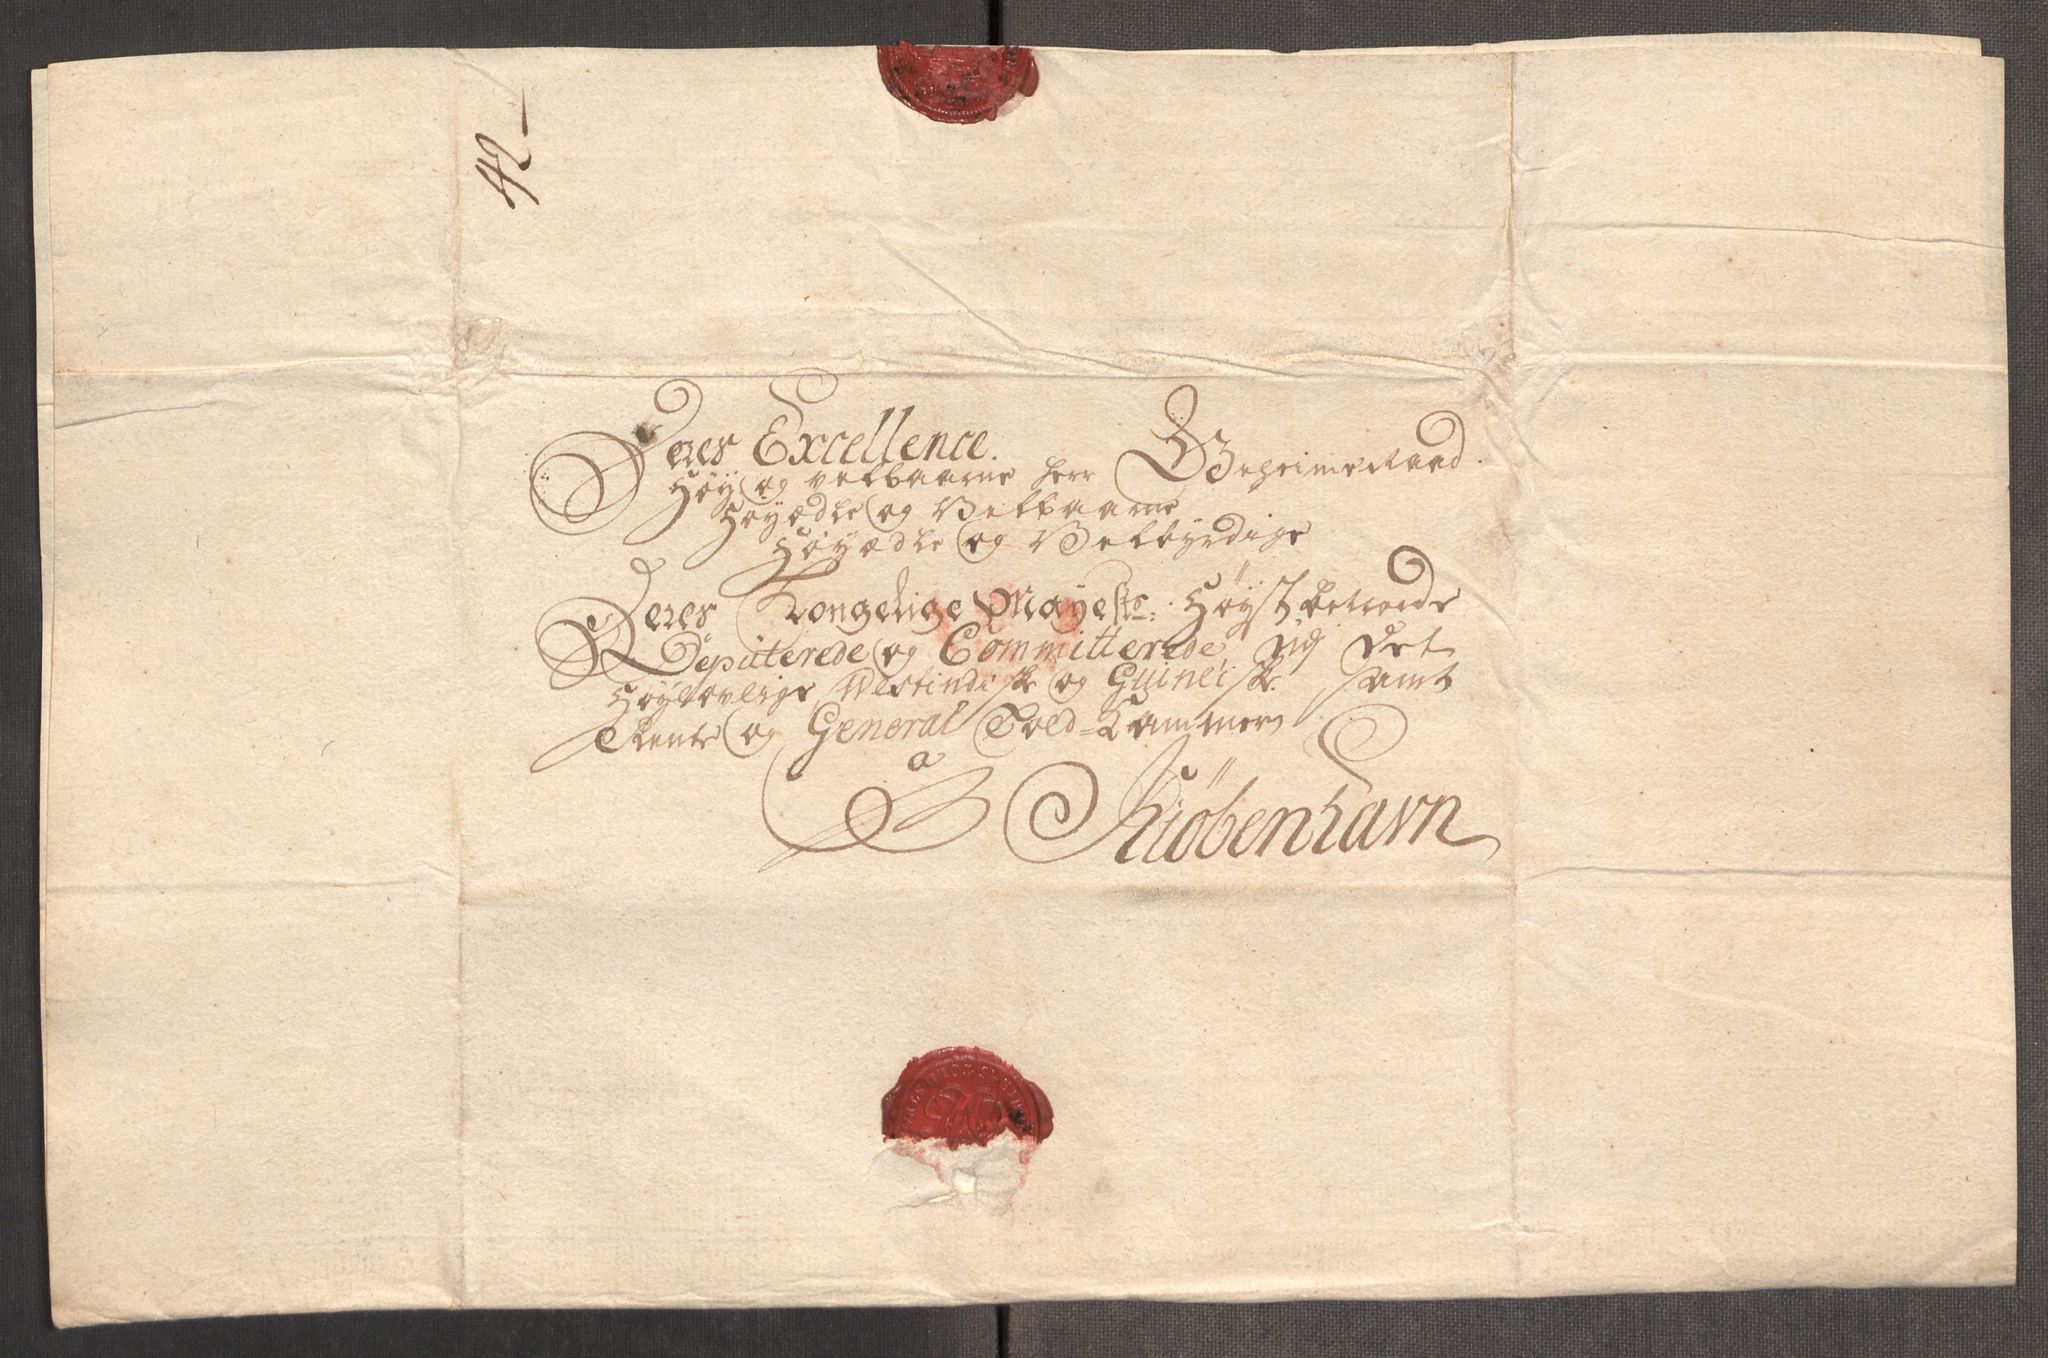 42 -
Deres Excellence.
Høy og velbaarne herr Geheime Raad.
Høyædle og Velbaarne
Høyædle og Velbyrdige
Deres Kongelige Mayests: Høystbetroede
Deputerede og Committerede ved det
Høylovlige Westindiske og Guineiske samt
Rente og General Told-Cammer
a
Kiöbenhavn